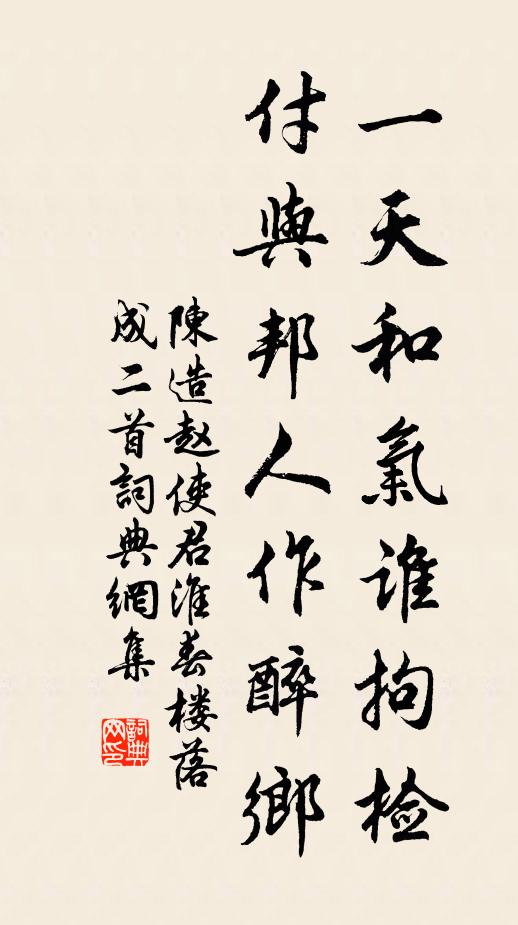 一天和氣誰拘檢
付與邦人作醉鄉
陳造趙使君淮春楼落
成二首詞典網集
詞典网印